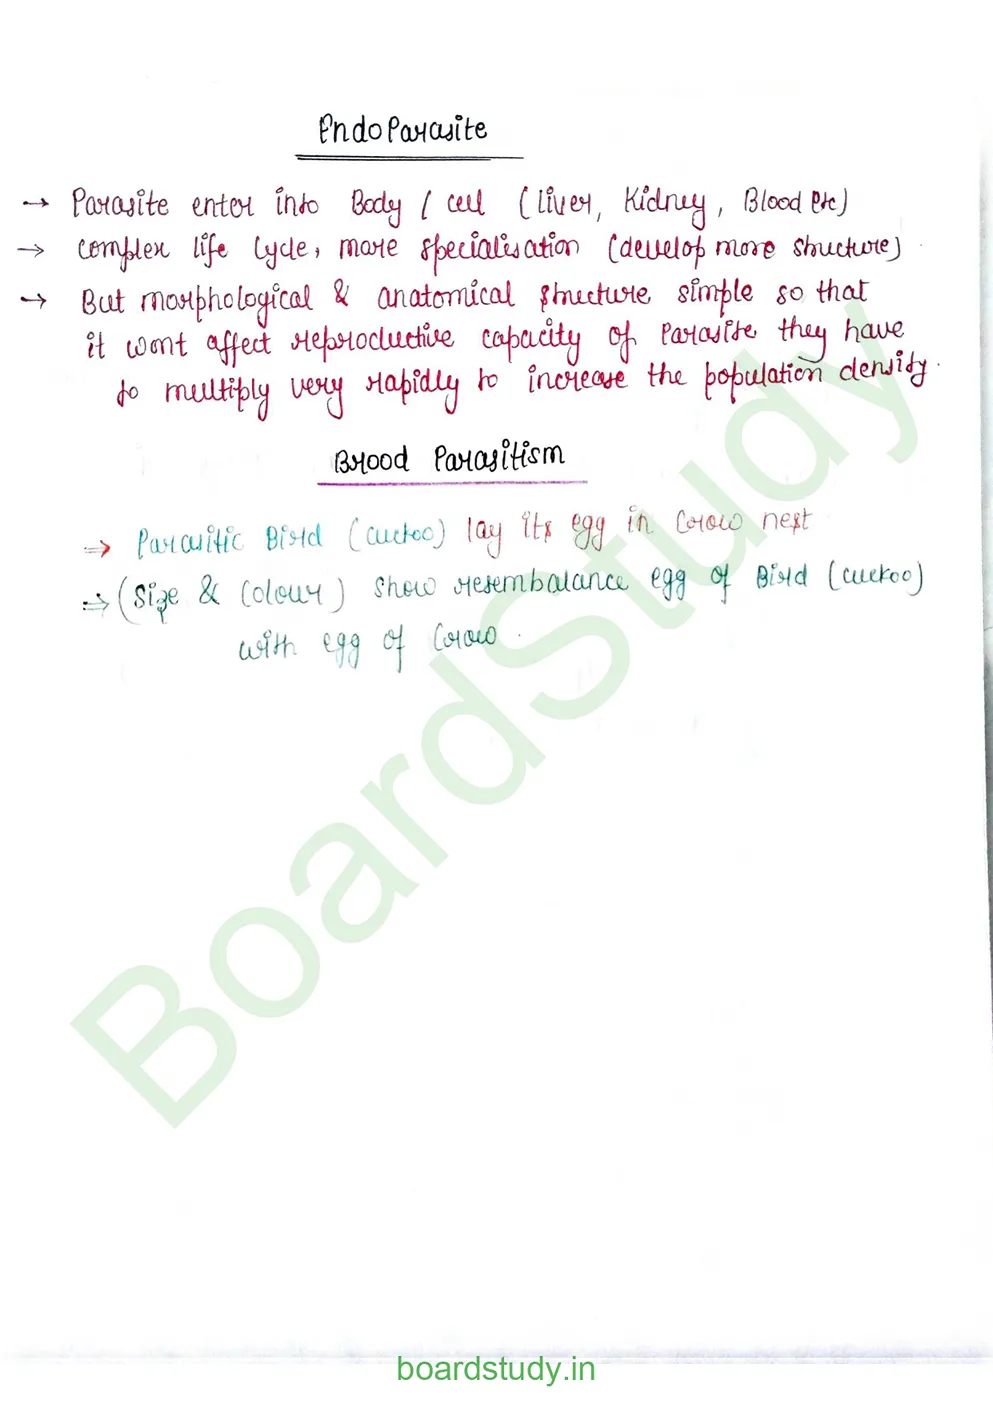 EndoParasite
→ Parasite enter into Body / cell (liver, Kidney, Blood etc)
→ complex life cycle, more specialisation (develop more structure).
→ But morphological & anatomical structure simple so that
it wont affect reproductive capacity of Parasite they have
to multiply very rapidly to increase the population density.
Brood Parasitism
⇒ Parasitic Bird (cuckoo) lay its egg in Crow nest
⇒ (Size & Colour) show resembalance egg of Bird (cuckoo)
with egg of Crow.
BoardStudy
boardstudy.in